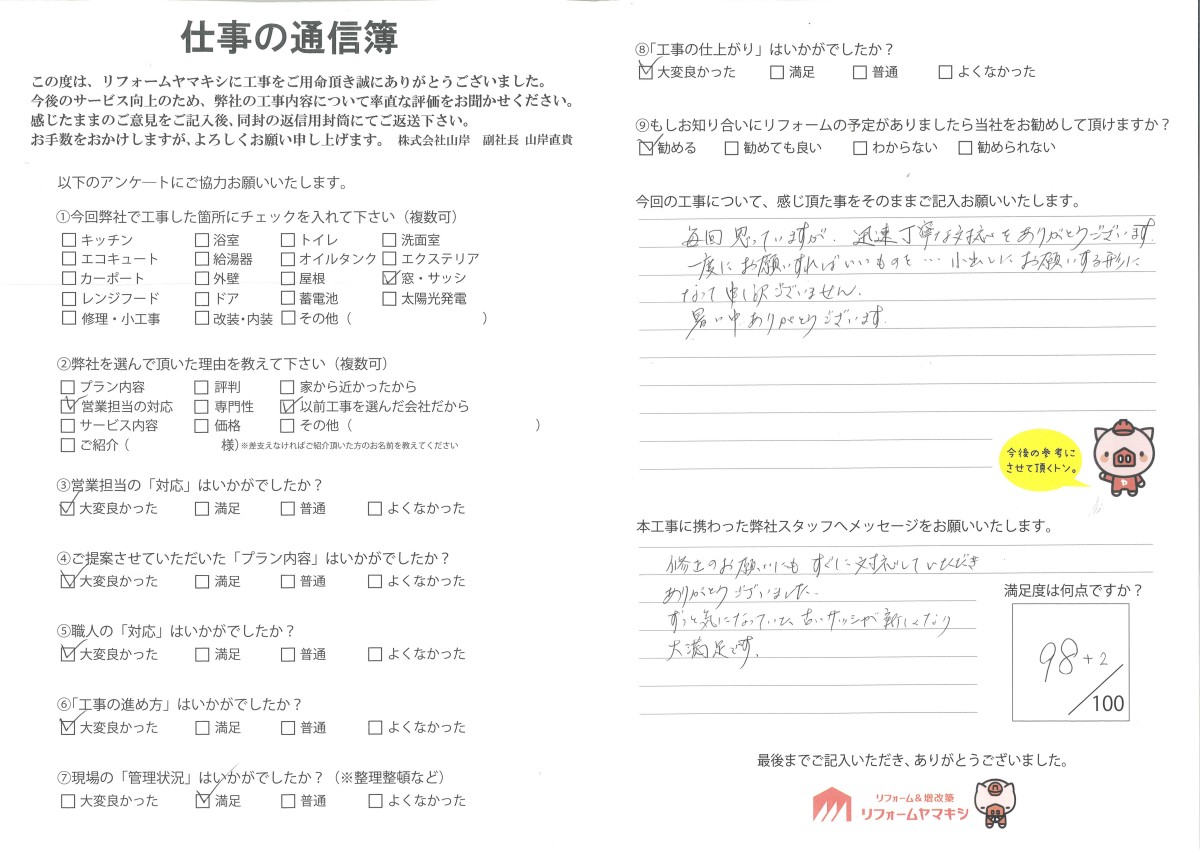 仕事の通信簿
この度は、リフォームヤマキシに工事をご用命頂き誠にありがとうございました。
今後のサービス向上のため、弊社の工事内容について率直な評価をお聞かせください。
感じたままのご意見をご記入後、同封の返信用封筒にてご返送下さい。
お手数をおかけしますが、よろしくお願い申し上げます。 株式会社山岸 副社長 山岸直貴
以下のアンケートにご協力お願いいたします。
①今回弊社で工事した箇所にチェックを入れて下さい（複数可）
□ キッチン □ 浴室 □ トイレ □ 洗面室
□ エコキュート □ 給湯器 □ オイルタンク □ エクステリア
□ カーポート □ 外壁 □ 屋根 ☑ 窓・サッシ
□ レンジフード □ ドア □ 蓄電池 □ 太陽光発電
□ 修理・小工事 □ 改装・内装 □ その他（ ）
②弊社を選んで頂いた理由を教えて下さい（複数可）
□ プラン内容 □ 評判 □ 家から近かったから
☑ 営業担当の対応 □ 専門性 ☑ 以前工事を選んだ会社だから
□ サービス内容 □ 価格 □ その他（ ）
□ ご紹介（ 様）※差支えなければご紹介頂いた方のお名前を教えてください
③営業担当の「対応」はいかがでしたか？
☑ 大変良かった □ 満足 □ 普通 □ よくなかった
④ご提案させていただいた「プラン内容」はいかがでしたか？
☑ 大変良かった □ 満足 □ 普通 □ よくなかった
⑤職人の「対応」はいかがでしたか？
☑ 大変良かった □ 満足 □ 普通 □ よくなかった
⑥「工事の進め方」はいかがでしたか？
☑ 大変良かった □ 満足 □ 普通 □ よくなかった
⑦現場の「管理状況」はいかがでしたか？（※整理整頓など）
□ 大変良かった ☑ 満足 □ 普通 □ よくなかった
⑧「工事の仕上がり」はいかがでしたか？
☑ 大変良かった □ 満足 □ 普通 □ よくなかった
⑨もしお知り合いにリフォームの予定がありましたら当社をお勧めして頂けますか？
☑ 勧める □ 勧めても良い □ わからない □ 勧められない
今回の工事について、感じ頂た事をそのままご記入お願いいたします。
毎回思っていますが、迅速丁寧な対応をありがとうございます。
一度にお願いすればいいものを…小出しにお願いする形に
なって申し訳ございません。
暑い中ありがとうございます。
今後の参考に
させて頂くトン。
本工事に携わった弊社スタッフへメッセージをお願いいたします。
修正のお願いにもすぐに対応していただき
ありがとうございました。
ずっと気になっていた古いサッシが新しくなり
大満足です。
満足度は何点ですか？
98+2
/100
最後までご記入いただき、ありがとうございました。
リフォーム＆増改築
リフォームヤマキシ